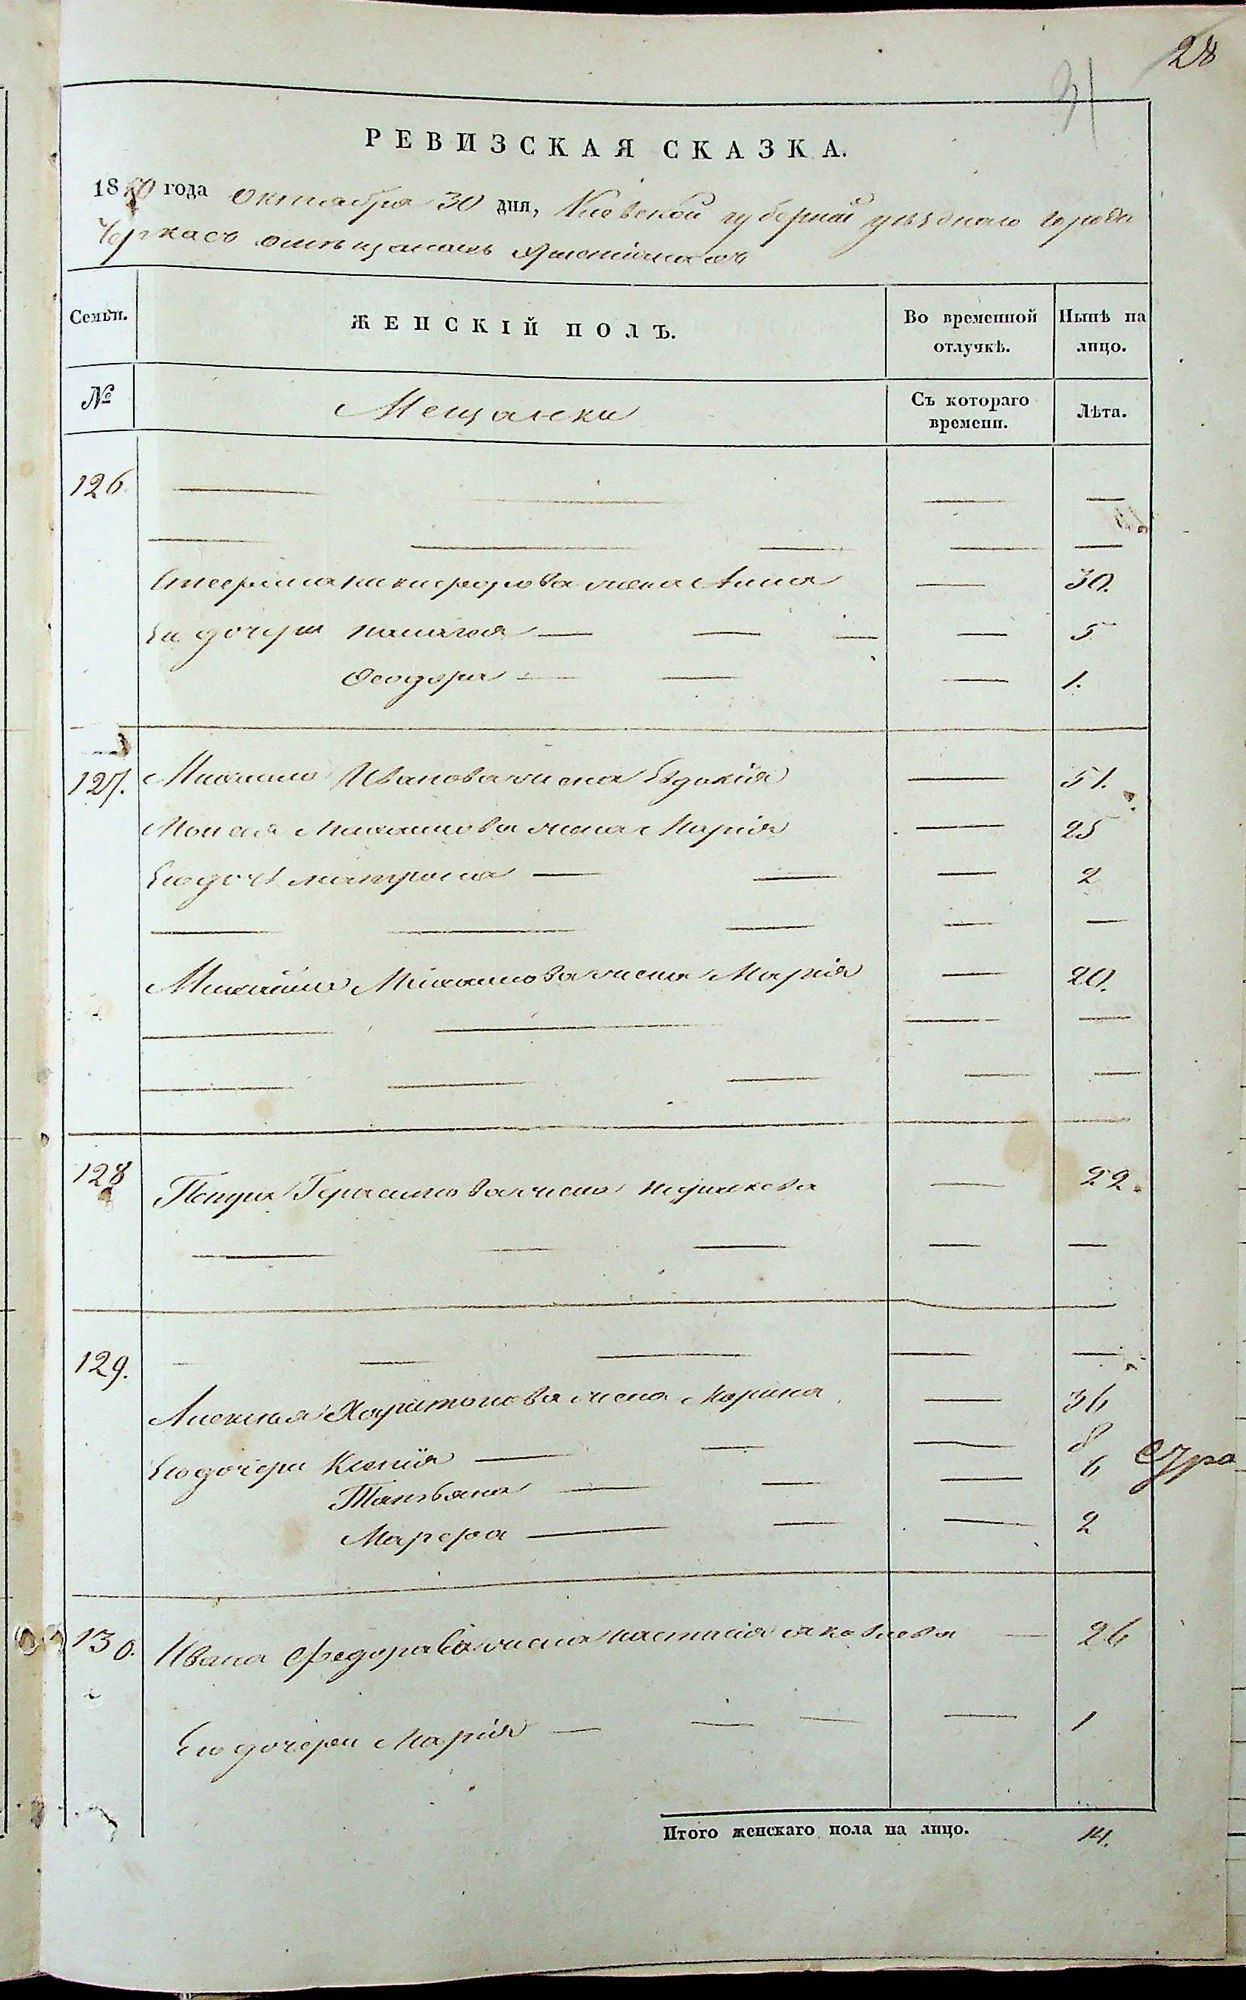 28
31
РЕВИЗСКАЯ СКАЗКА.
1850 года октября 30 дня, Киевской губернии уезднаго города
Черкасъ о мещанахъ християнахъ
Семьи. ЖЕНСКІЙ ПОЛЪ. Во временной отлучкѣ. Нынѣ на лицо.
№ Мещанки Съ котораго времени. Лѣта.
126.
Никифорова жена Анна 30.
Ея дочери Палагея 5
Феодора 1.
127. Михаила Иванова жена Евдокія 51.
Моисея Михайлова жена Марія 25
Его дочь Матрона 2
Михайла Михайлова жена Марія 20.
128 Герасимова жена 22.
129.
Алексея Харитонова жена Марина 36
Его дочери Ксенія 8
Татьяна 6
Марфа 2
130. Ивана Федорова жена Настасія Яковлева 26
Его дочери Марія 1
Итого женскаго пола на лицо. 14.